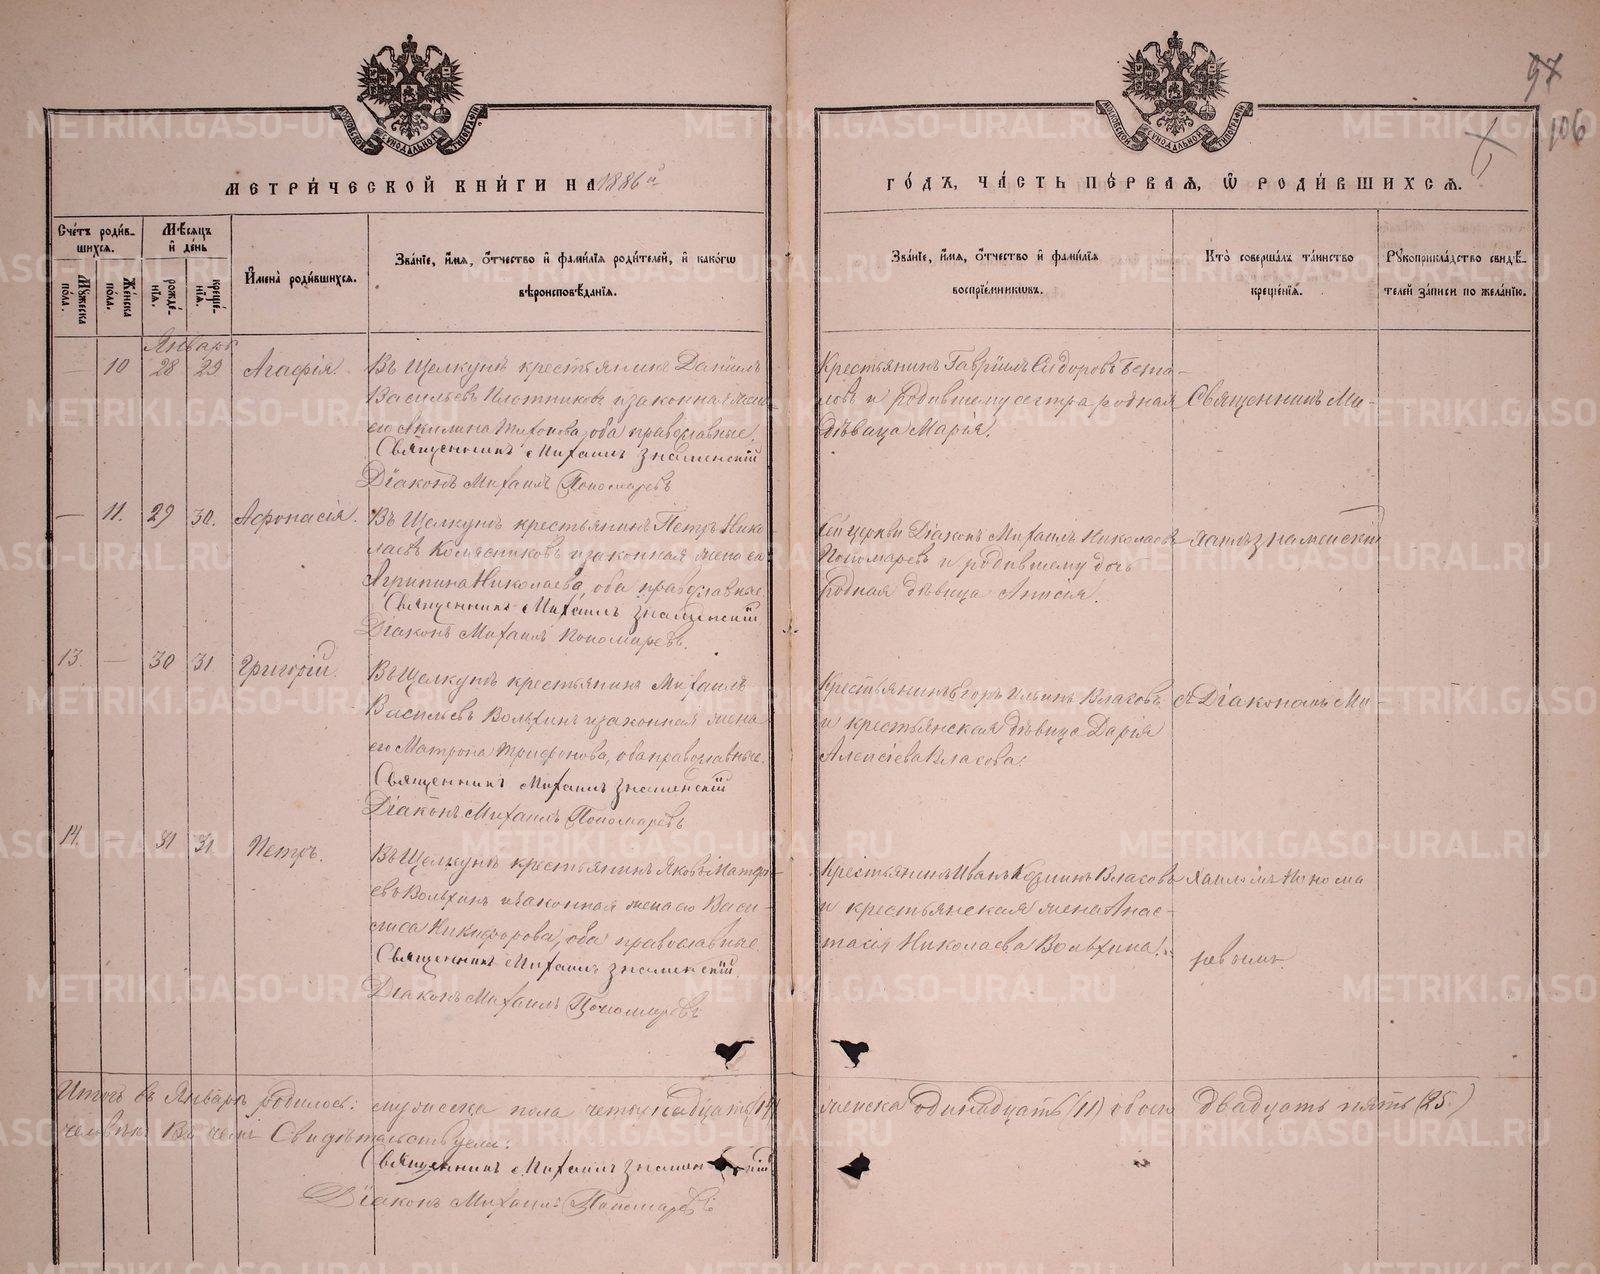 97
106
МОСКОВСКОЙ СѴНОДАЛЬНОЙ ТИПОГРАФІИ
МОСКОВСКОЙ СѴНОДАЛЬНОЙ ТИПОГРАФІИ
МЕТРИ́ЧЕСКОЙ КНИ́ГИ НА 1886й
ГО́ДЪ, ЧА́СТЬ ПЕ́РВАѦ, Ѡ҆ РОДИ́ВШИХСѦ.
Сче́тъ роди́в-
шихся.
Мꙋжеска по́ла.
Же́нска по́ла.
Мѣ́сяцъ и҆ де́нь
рожде́-нїѧ.
креще́-нїѧ.
И҆мена̀ роди́вшихсѧ.
Зва́нїе, и҆́мѧ, ѻ҆́тчество и҆ фами́лїѧ роди́телей, и҆ како́гѡ
вѣроисповѣ́данїѧ.
Зва́нїе, и҆́мѧ, ѻ҆́тчество и҆ фами́лїѧ
воспрїе́мникѡвъ.
Кто̀ соверша́лъ та́инство
креще́нїѧ.
Рꙋкоприкла́дство свидѣ́-
телей за́писи по жела́нїю.
Январь
— 10 28 29 Агафія.
Въ Щелкунѣ крестьянинъ Даніилъ
Васильевъ Плотниковъ и законная жена
его Акилина Тихонова, оба православные.
Священникъ Михаилъ Знаменскій
Діаконъ Михаилъ Пономаревъ
Крестьянинъ Гавріилъ Сидоровъ
и родившему сестра родная
дѣвица Марія.
Священникъ Ми-
— 11. 29 30. Афонасія.
Въ Щелкунѣ крестьянинъ Петръ Нико-
лаевъ Колясниковъ и законная жена его
Агрипина Николаева, оба православные.
Священникъ Михаилъ Знаменскій
Діаконъ Михаилъ Пономаревъ.
Сей церкви Діаконъ Михаилъ Николаевъ
Пономаревъ и родившему дочь
родная дѣвица Анисія.
хаилъ Знаменскій
13. — 30 31 Григорій.
Въ Щелкунѣ крестьянинъ Михаилъ
Васильевъ Вольхинъ и законная жена
его Матрона Трифонова, оба православные.
Священникъ Михаилъ Знаменскій
Діаконъ Михаилъ Пономаревъ
Крестьянинъ Егоръ Ильинъ Власовъ
и крестьянская дѣвица Дарія
Алексіева Власова.
съ Діакономъ Ми-
14. — 31 31 Петръ.
Въ Щелкунѣ крестьянинъ Яковъ Матфі-
евъ Вольхинъ и законная жена его Васи-
лиса Никифорова, оба православные.
Священникъ Михаилъ Знаменскій
Діаконъ Михаилъ Пономаревъ
Крестьянинъ Иванъ Козминъ Власовъ
и крестьянская жена Анас-
тасія Николаева Вольхина.
хаиломъ Понома
ревымъ.
Итого въ Январѣ родилось: мужеска пола четырнадцать (14)
женска одинадцать (11) обоего двадцать пять (25.)
человѣкъ. Въ чемъ Свидѣтельствуемъ:
Священникъ Михаилъ Знаменскій
Діаконъ Михаилъ Пономаревъ
METRIKI.GASO-URAL.RU